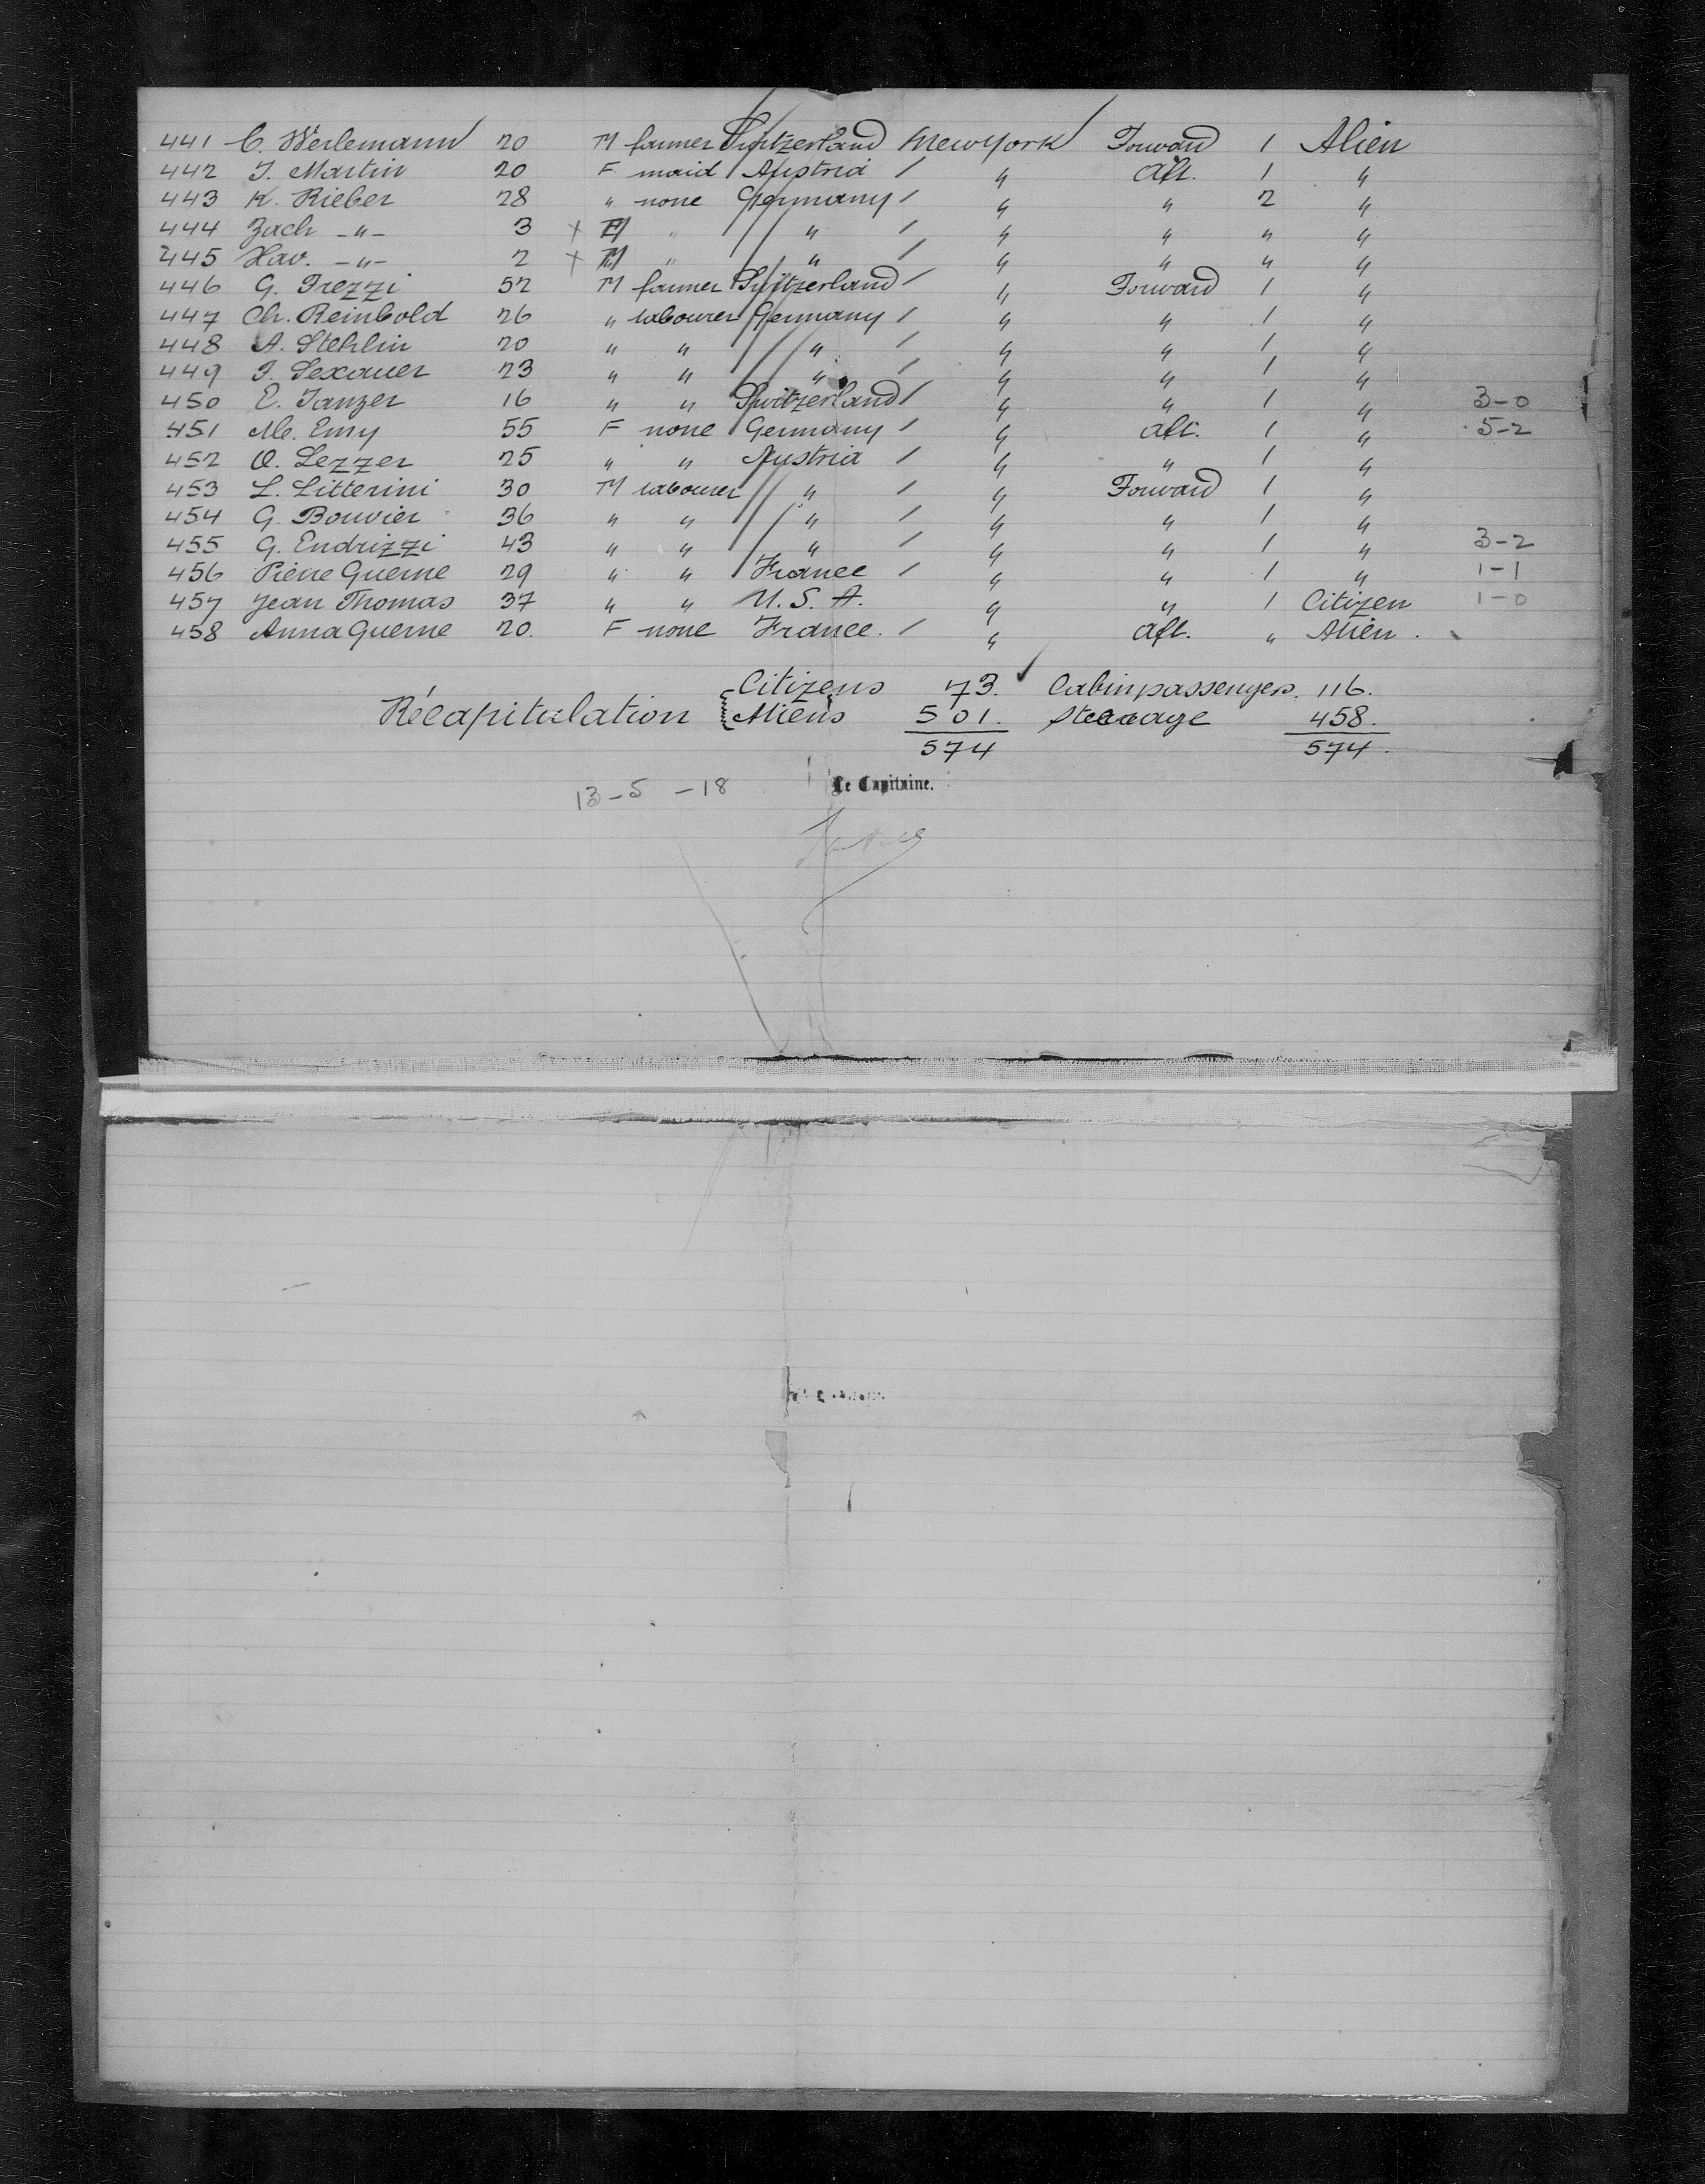 441 C. Werlemann 20 M farmer Switzerland New York Forward 1 Alien
442 J. Martin 20 F maid Austria / " Aft. 1 "
443 K. Rieber 28 " none Germany / " " 2 "
444 Zach -"- 3 + " " / " " " "
445 Xav. -"- 2 + M " " / " " " "
446 G. Trezzi 52 M farmer Switzerland / " Forward 1 "
447 Ch. Reinbold 26 " labourer Germany / " " 1 "
448 A. Stehlin 20 " " " / " " 1 "
449 J. Sexauer 23 " " " / " " 1 "
450 E. Tanzer 16 " " Switzerland / " " 1 " 3-0
451 Me. Emy 55 F none Germany / " Aft. 1 " 5-2
452 O. Lezzer 25 " " Austria / " " 1 "
453 L. Litterini 30 M labourer " / " Forward 1 "
454 G. Bouvier 36 " " " / " " 1 "
455 G. Endrizzi 43 " " " / " " 1 " 3-2
456 Pierre Guerne 29 " " France / " " 1 " 1-1
457 Jean Thomas 37 " " U.S.A. " " 1 Citizen 1-0
458 Anna Guerne 20. F none France. / " Aft. " Alien.
Citizens 73. Cabin passengers. 116.
Récapitulation { Aliens 501. Steerage 458.
574 574.
13-5 -18 Le Capitaine.